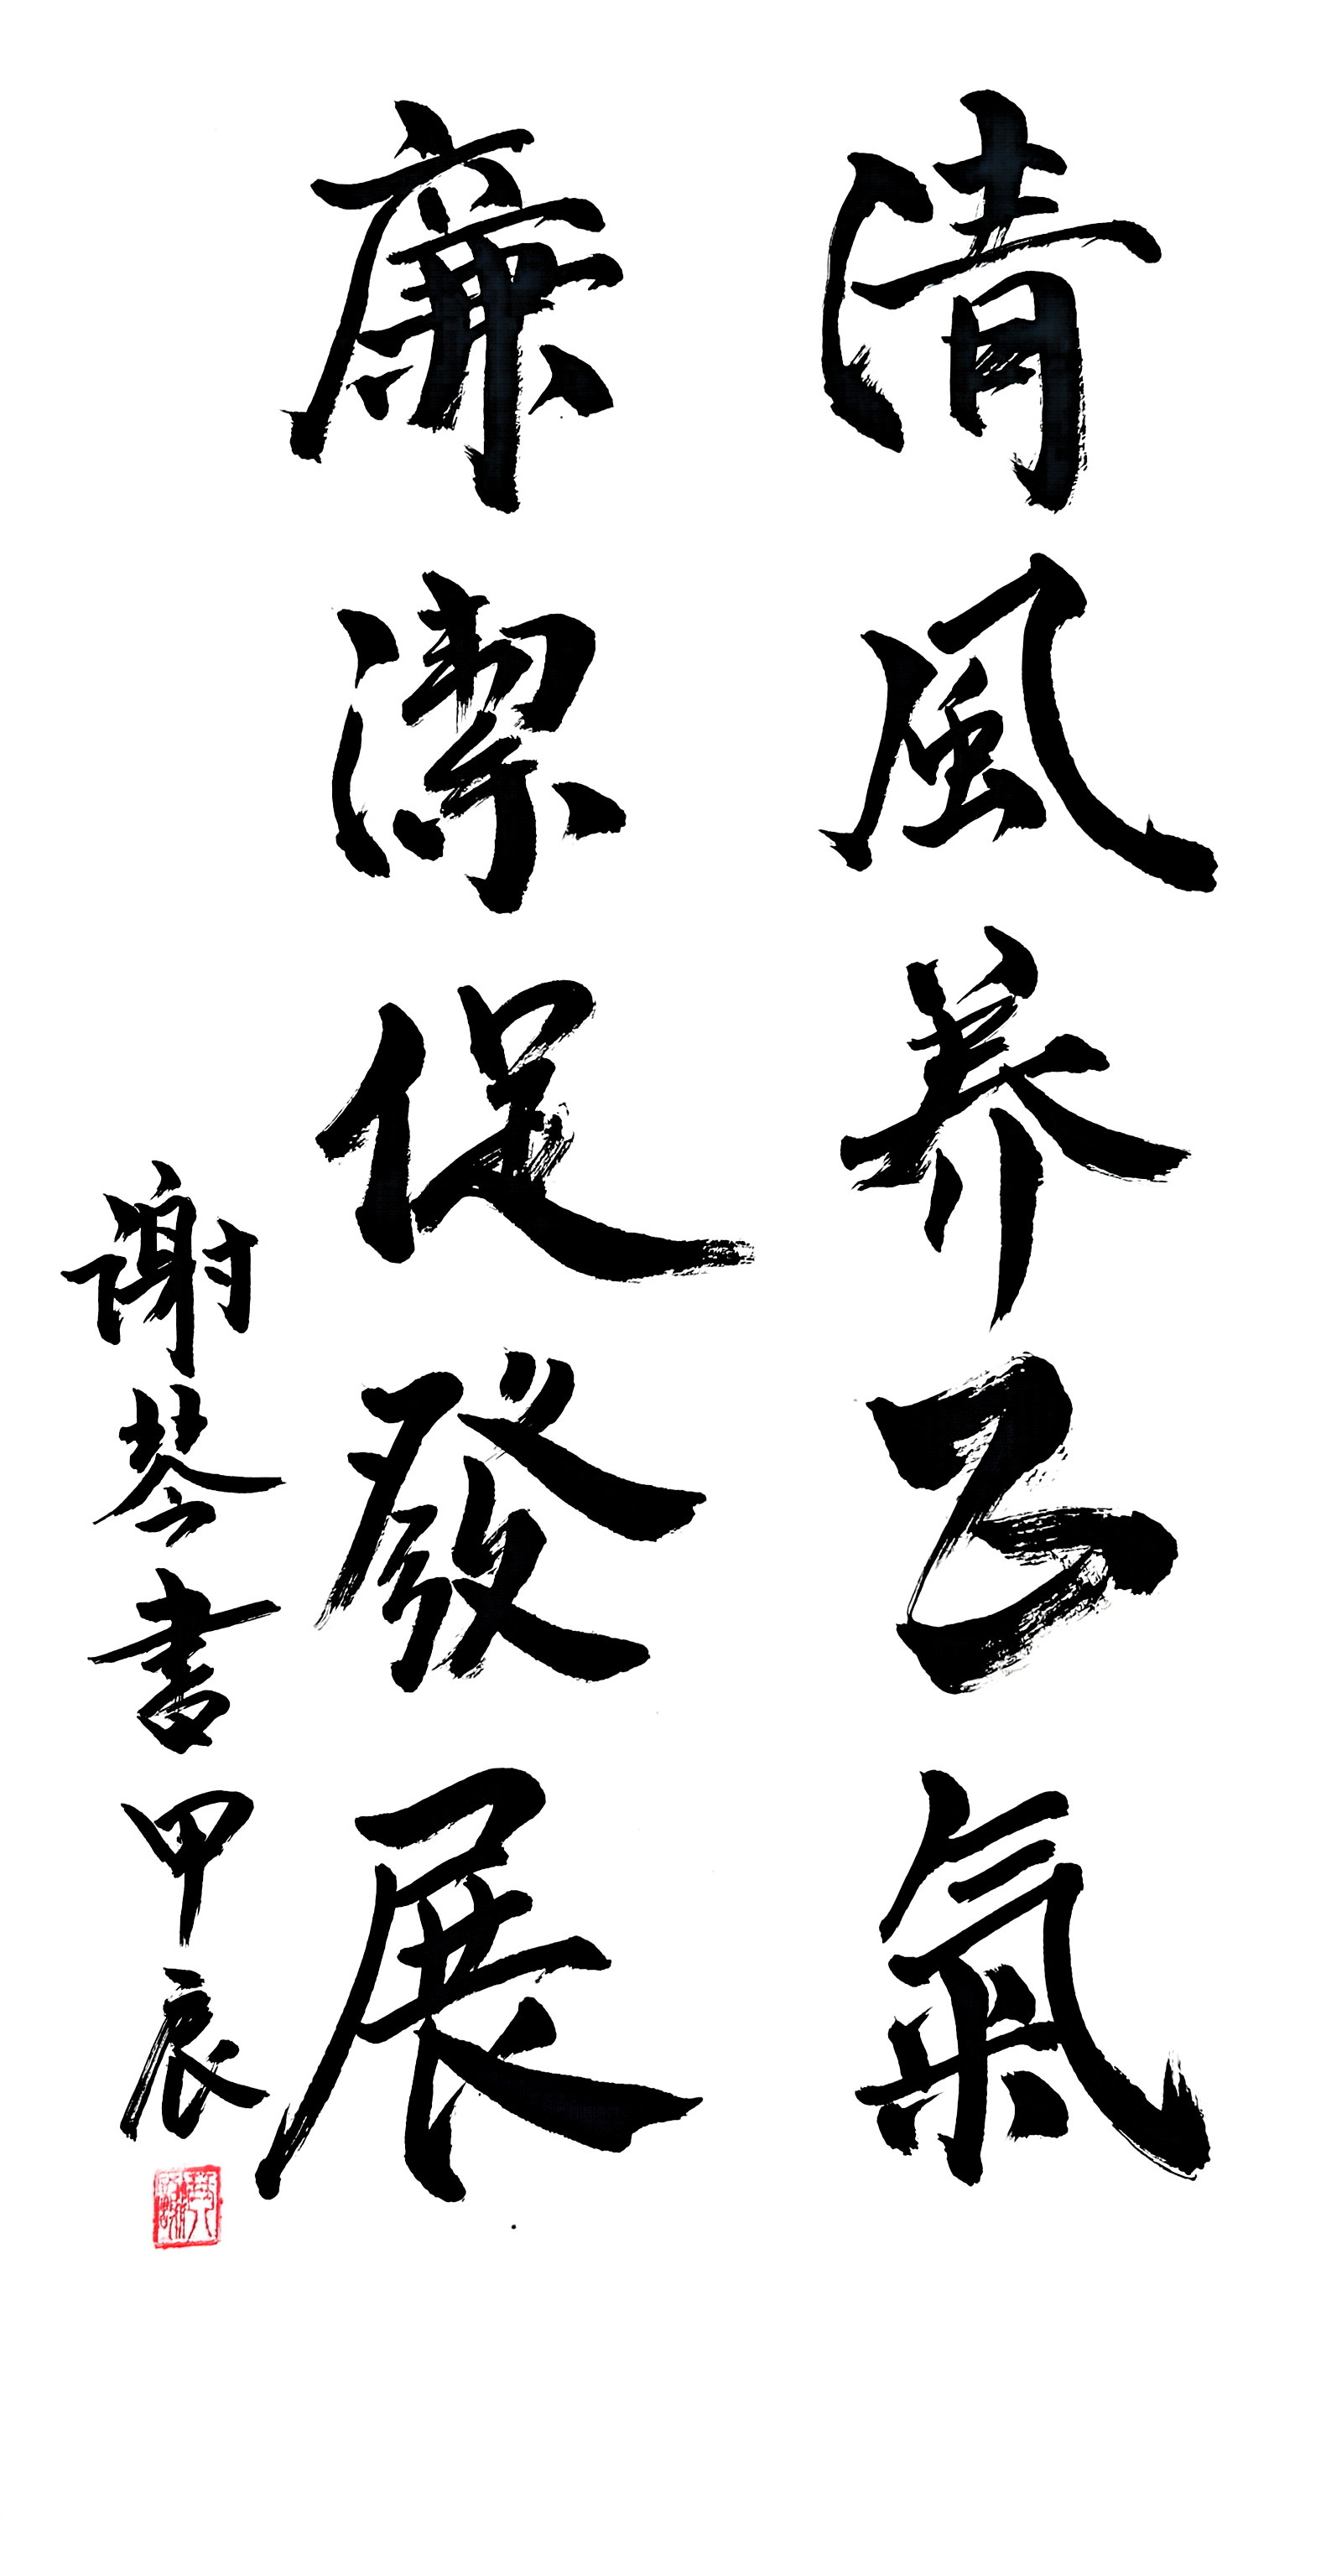 清風养正氣
廉潔促發展
谢琴書甲辰